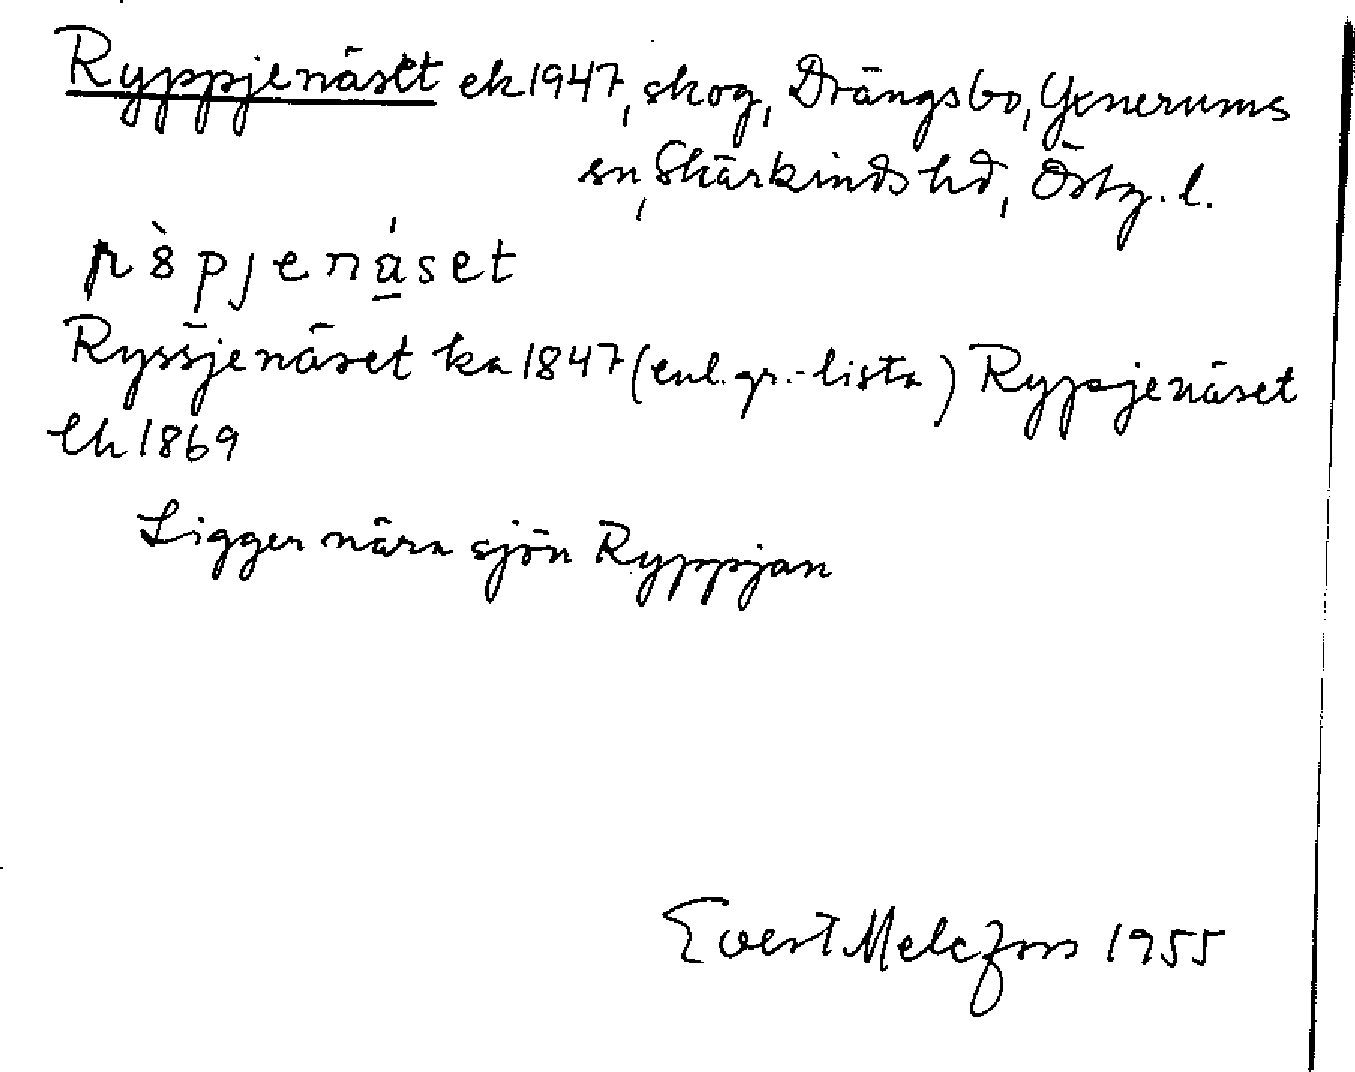 Ryppjenäset ek 1947, skog, Drängsbo, Yxnerums
sn, Skärkinds hd, Östg. l.
Ryssjenäset ka 1847 (enl. gr.-lista) Rypsjenäset
Ek 1869
Ligger nära sjön Ryppjan
Evert Melefors 1955